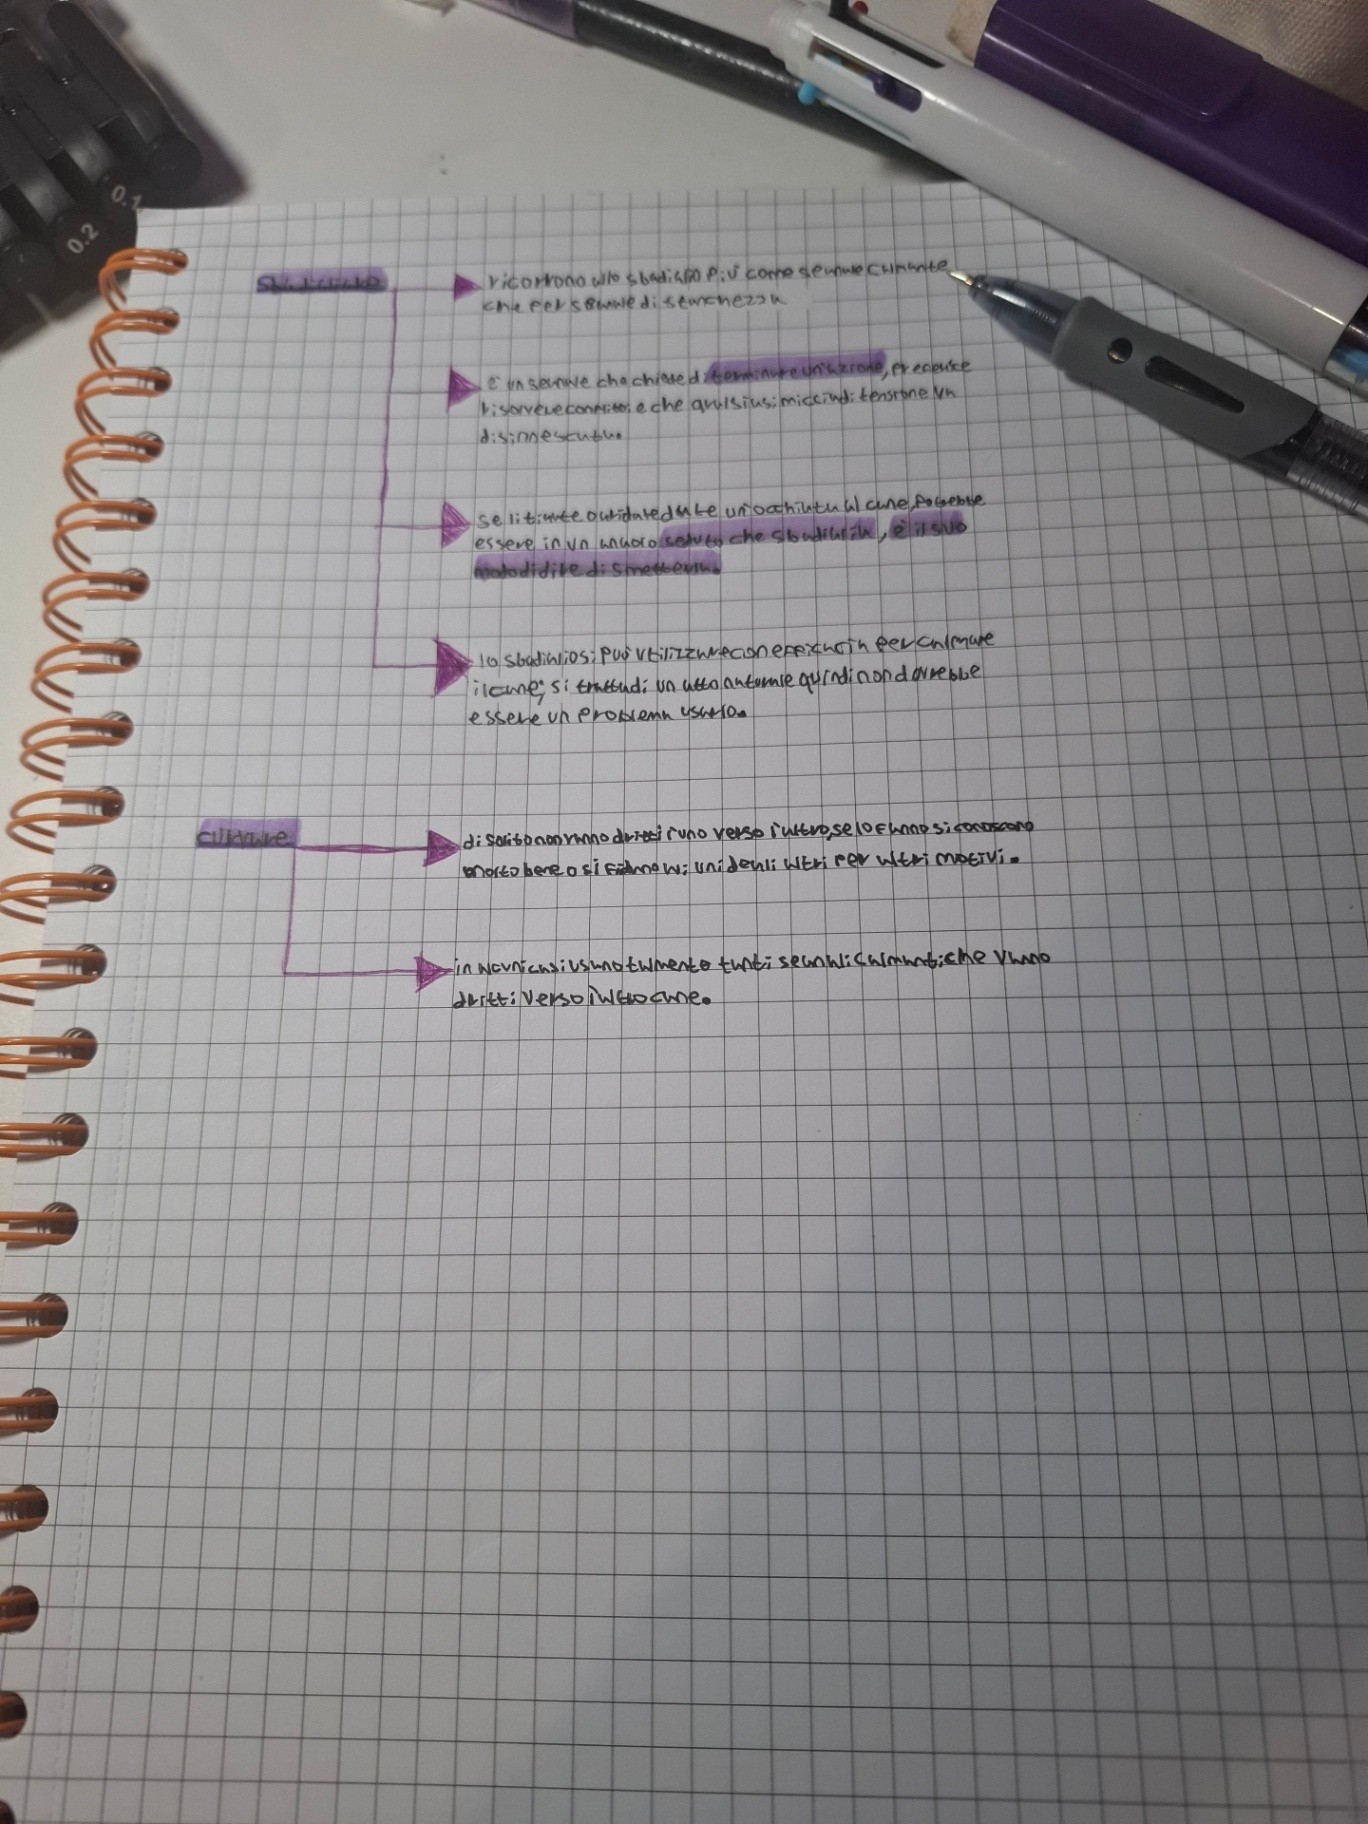 0.1
0.2
sbadiglio
ricorrono allo sbadiglio più come segnale calmante
che per segnale di stanchezza
è un segnale che chiede di terminare un'azione, precede
risolvere conflitti e che qualsiasi miccia di tensione va
disinnescata.
se ti limite o guidate date un'occhiata al cane, potrebbe
essere in un angolo seduto che sbadiglia, è il suo
modo di dire di smetterla.
lo sbadiglio si può utilizzare con efficacia per calmare
il cane; si tratta di un atto naturale quindi non dovrebbe
essere un problema usarlo.
curvare
di solito non vanno dritti l'uno verso l'altro, se lo fanno si conoscono
molto bene o si fidano gli uni degli altri per altri motivi.
in ogni caso usano talmente tanti segnali calmanti che vanno
dritti verso l'altro cane.